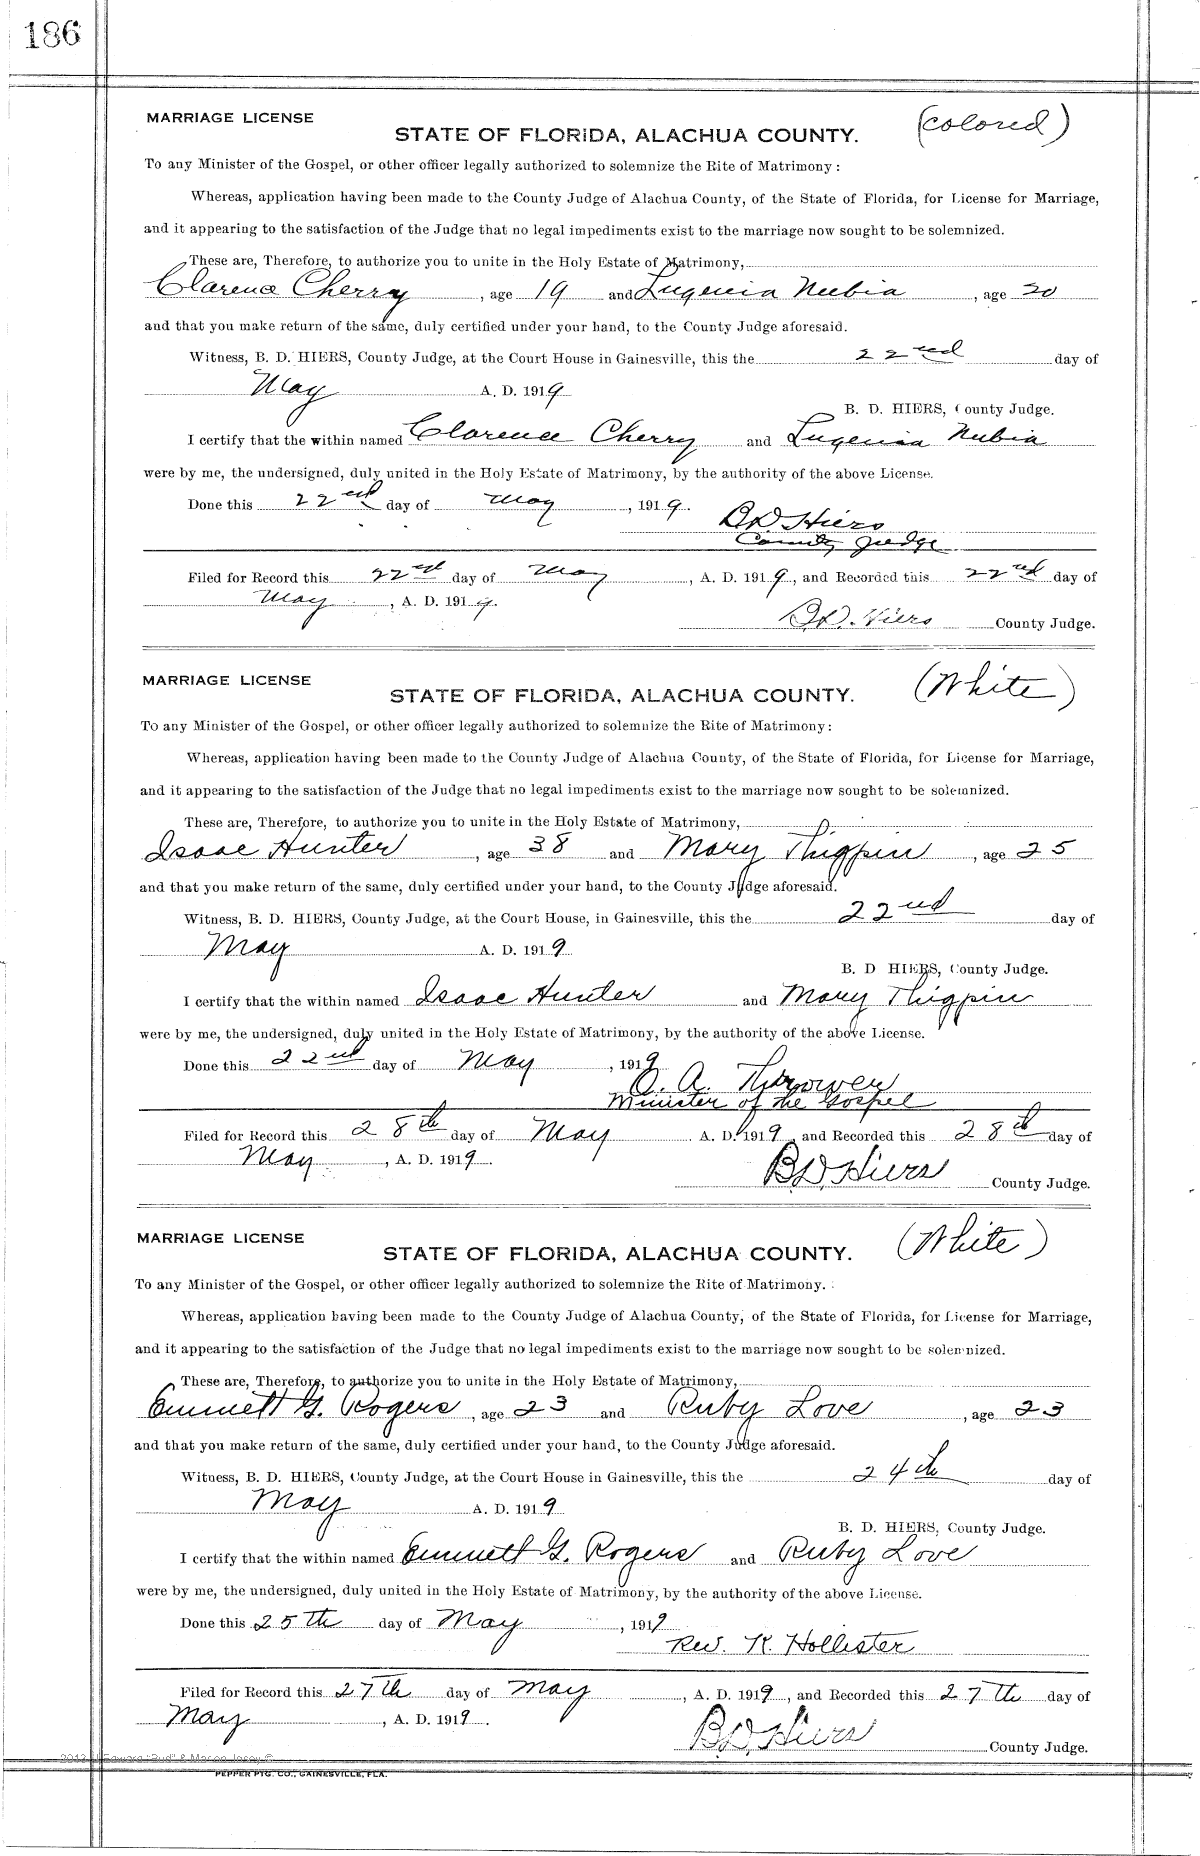 186
MARRIAGE LICENSE
(colored)
STATE OF FLORIDA, ALACHUA COUNTY.
To any Minister of the Gospel, or other officer legally authorized to solemnize the Rite of Matrimony:
Whereas, application having been made to the County Judge of Alachua County, of the State of Florida, for License for Marriage,
and it appearing to the satisfaction of the Judge that no legal impediments exist to the marriage now sought to be solemnized.
These are, Therefore, to authorize you to unite in the Holy Estate of Matrimony,
Clarence Cherry, age 19 and Lugenia Nubia, age 20
and that you make return of the same, duly certified under your hand, to the County Judge aforesaid.
Witness, B. D. HIERS, County Judge, at the Court House in Gainesville, this the 22nd day of
May A. D. 1919
B. D. HIERS, County Judge.
I certify that the within named Clarence Cherry and Lugenia Nubia
were by me, the undersigned, duly united in the Holy Estate of Matrimony, by the authority of the above License.
Done this 22nd day of May, 1919.
BD Hiers
County Judge
Filed for Record this 22nd day of May, A. D. 1919, and Recorded this 22nd day of
May, A. D. 1919.
B.D. Hiers County Judge.
MARRIAGE LICENSE
(White)
STATE OF FLORIDA, ALACHUA COUNTY.
To any Minister of the Gospel, or other officer legally authorized to solemnize the Rite of Matrimony:
Whereas, application having been made to the County Judge of Alachua County, of the State of Florida, for License for Marriage,
and it appearing to the satisfaction of the Judge that no legal impediments exist to the marriage now sought to be solemnized.
These are, Therefore, to authorize you to unite in the Holy Estate of Matrimony,
Isaac Hunter, age 38 and Mary Thigpin, age 25
and that you make return of the same, duly certified under your hand, to the County Judge aforesaid.
Witness, B. D. HIERS, County Judge, at the Court House, in Gainesville, this the 22nd day of
May A. D. 1919
B. D HIERS, County Judge.
I certify that the within named Isaac Hunter and Mary Thigpin
were by me, the undersigned, duly united in the Holy Estate of Matrimony, by the authority of the above License.
Done this 22nd day of May, 1919
O. A. Thrower
Minister of the Gospel
Filed for Record this 28th day of May A. D. 1919, and Recorded this 28th day of
May, A. D. 1919.
BD Hiers County Judge.
MARRIAGE LICENSE
(White)
STATE OF FLORIDA, ALACHUA COUNTY.
To any Minister of the Gospel, or other officer legally authorized to solemnize the Rite of Matrimony.
Whereas, application having been made to the County Judge of Alachua County, of the State of Florida, for License for Marriage,
and it appearing to the satisfaction of the Judge that no legal impediments exist to the marriage now sought to be solemnized.
These are, Therefore, to authorize you to unite in the Holy Estate of Matrimony,
Emmett G. Rogers, age 23 and Ruby Love, age 23
and that you make return of the same, duly certified under your hand, to the County Judge aforesaid.
Witness, B. D. HIERS, County Judge, at the Court House in Gainesville, this the 24th day of
May A. D. 1919
B. D. HIERS, County Judge.
I certify that the within named Emmett G. Rogers and Ruby Love
were by me, the undersigned, duly united in the Holy Estate of Matrimony, by the authority of the above License.
Done this 25th day of May, 1919
Rev. K. Hollister
Filed for Record this 27th day of May, A. D. 1919, and Recorded this 27th day of
May, A. D. 1919.
BD Hiers County Judge.
PEPPER PTG. CO., GAINESVILLE, FLA.